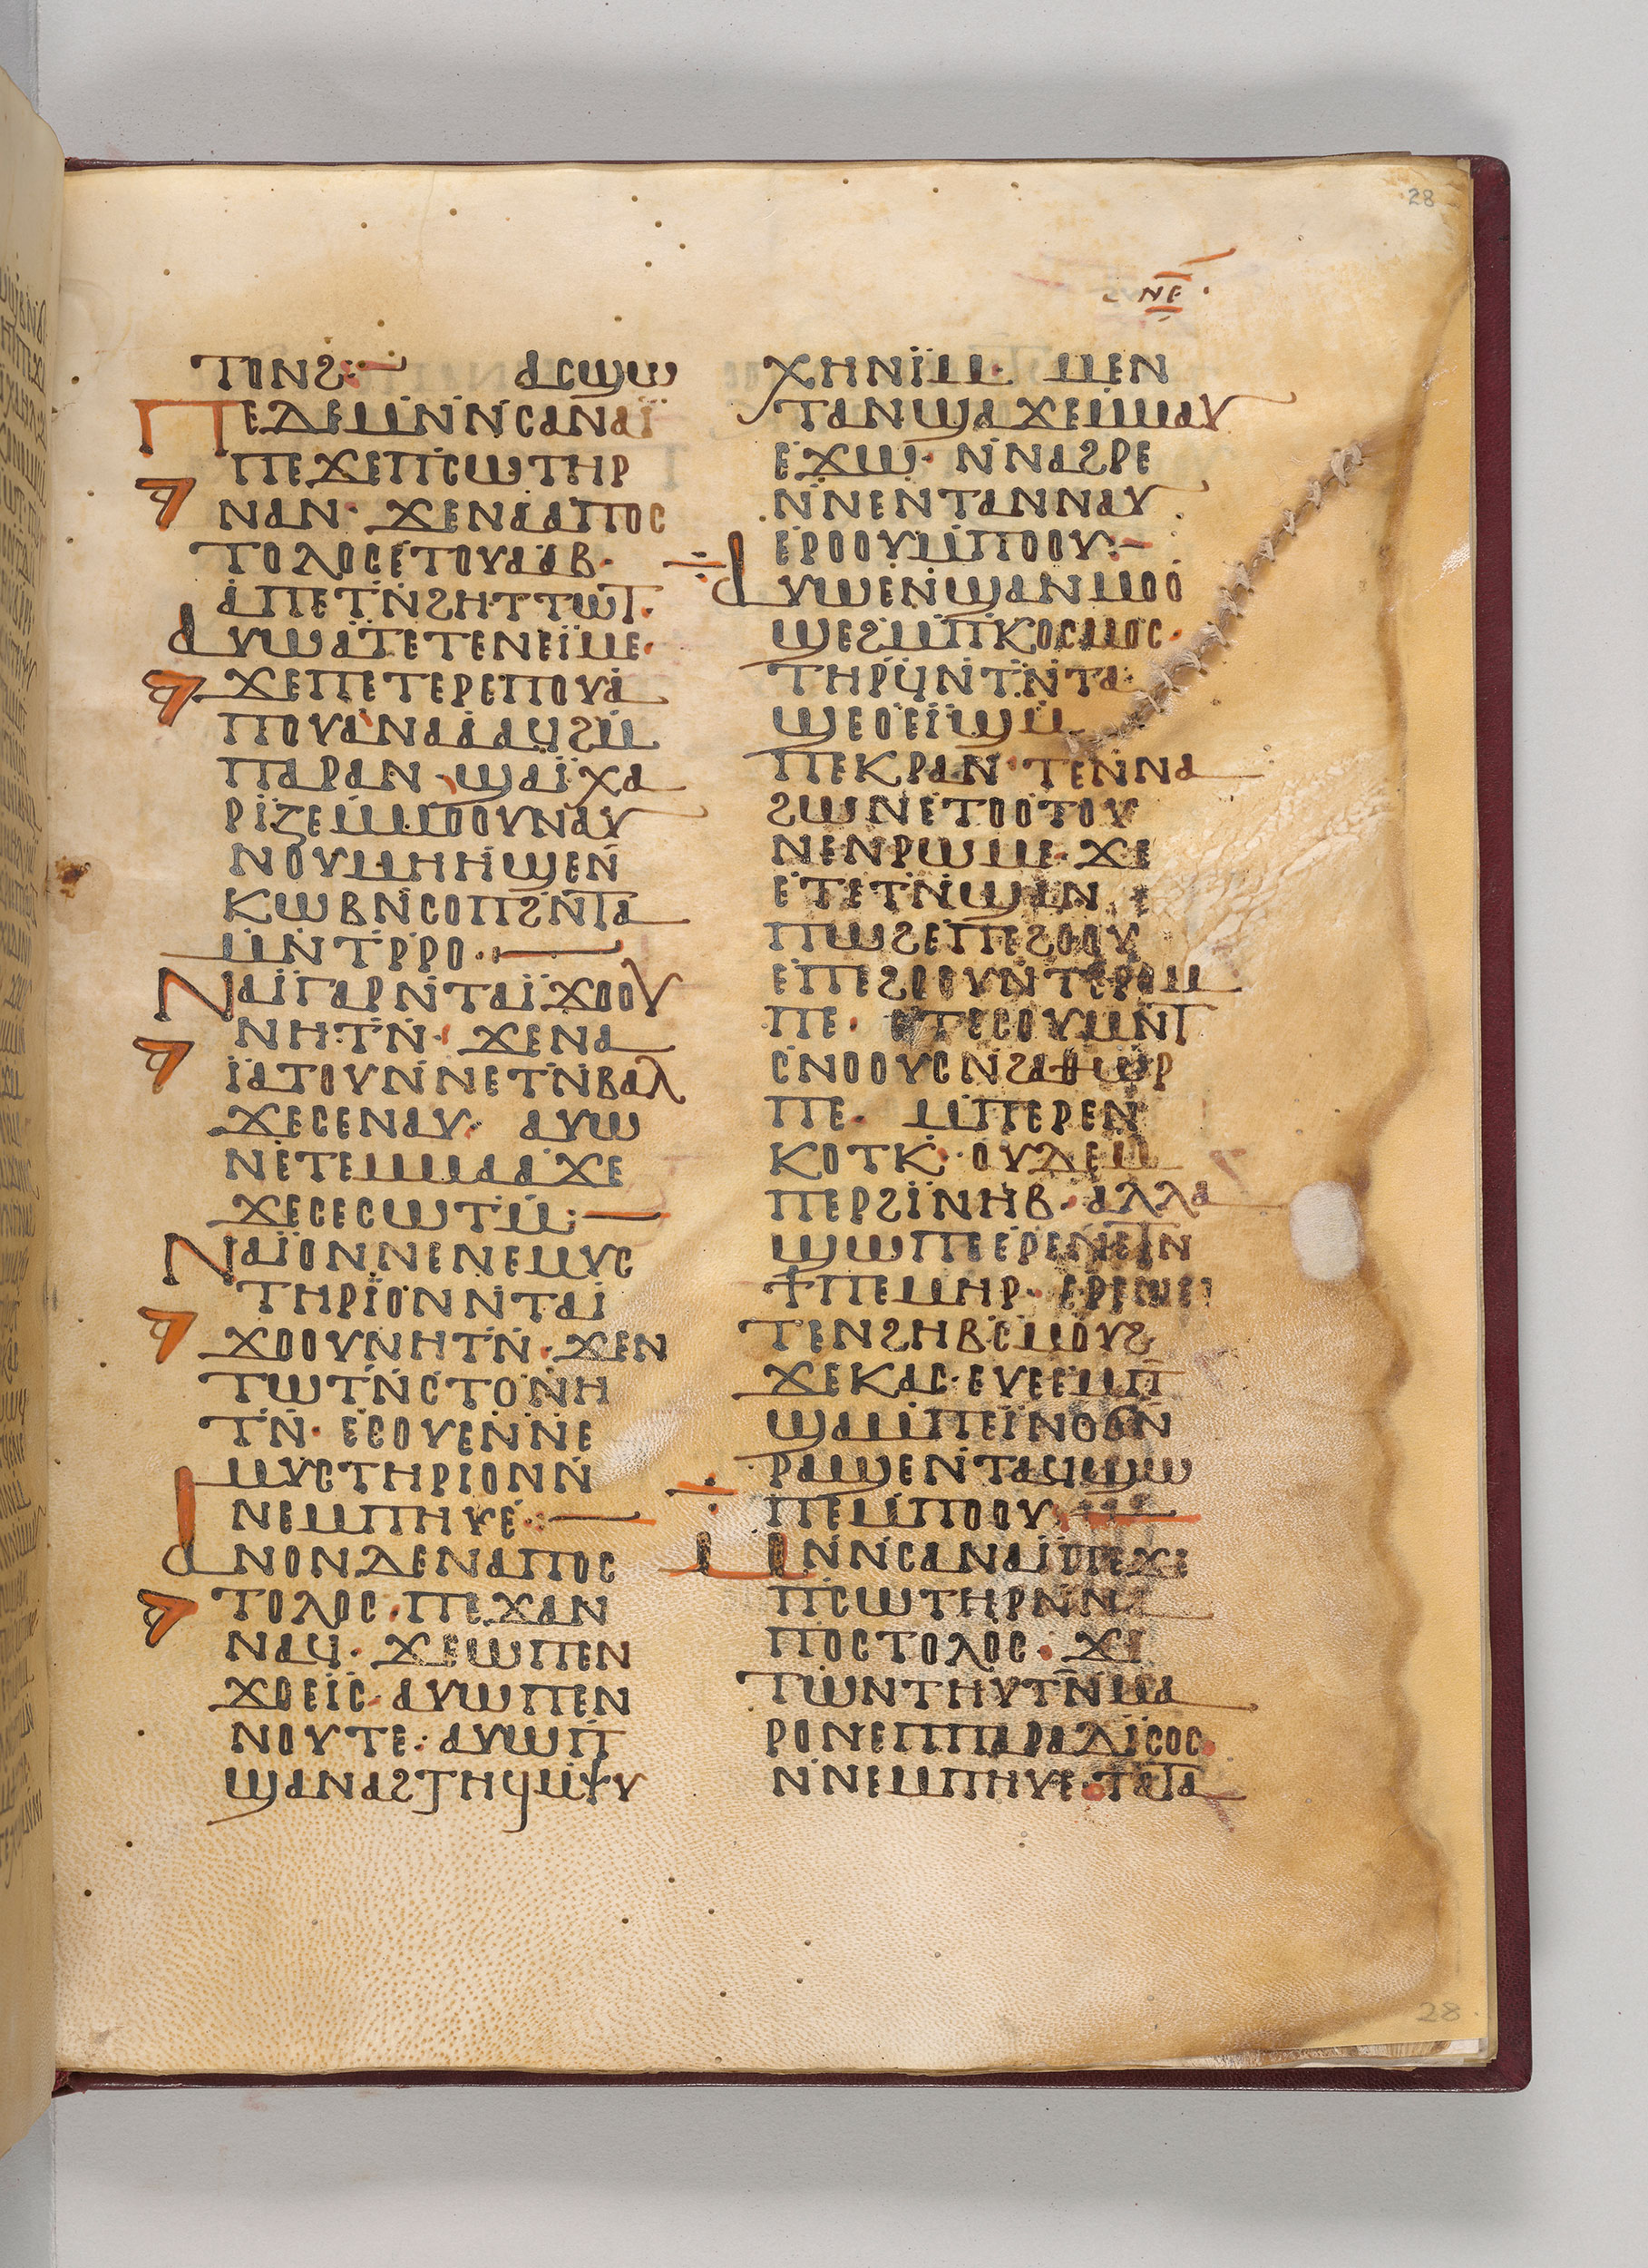 28
ⲛⲉ
ⲧⲟⲛϩ· ⲁⲥϣⲱ
ⲡⲉⲇⲉⲙⲛ̇ⲛ̇ⲥⲁⲛⲁⲓ̈
ⲡⲉϫⲉⲡⲥⲱⲧⲏⲣ
ⲛⲁⲛ· ϫⲉⲛⲁⲁⲡⲟⲥ
ⲧⲟⲗⲟⲥⲉⲧⲟⲩⲁⲁⲃ·
ⲁⲡⲉⲧⲛ̇ϩⲏⲧⲧⲱⲧ·
ⲁⲩⲱⲁⲧⲉⲧⲉⲛⲉⲓ̈ⲙⲉ·
ϫⲉⲡⲉⲧⲉⲣⲉⲡⲟⲩⲁ
ⲡⲟⲩⲁⲛⲁⲁⲁϥϩⲙ̇
ⲡⲁⲣⲁⲛ ϣⲁⲓ̈ⲭⲁ
ⲣⲓⲍⲉⲙⲙⲟⲟⲩⲛⲁⲩ
ⲛⲟⲩⲙⲏⲏϣⲉⲛ̇
ⲕⲱⲃⲛ̇ⲥⲟⲡϩⲛ̇ⲧⲁ
ⲙⲛ̇ⲧⲣ̇ⲣⲟ·
ⲛⲁⲓ̈ⲅⲁⲣⲛ̇ⲧⲁⲓ̈ϫⲟⲟⲩ
ⲛⲏⲧⲛ̇· ϫⲉⲛⲁ
ⲓ̈ⲁⲧⲟⲩⲛ̇ⲛⲉⲧⲛ̇ⲃⲁⲗ
ϫⲉⲥⲉⲛⲁⲩ· ⲁⲩⲱ
ⲛⲉⲧⲉⲙⲙⲁⲁϫⲉ
ϫⲉⲥⲉⲥⲱⲧⲙ̇·
ⲛⲁⲓ̈ⲟⲛⲛⲉⲛⲉⲙⲩⲥ
ⲧⲏⲣⲓⲟⲛⲛ̇ⲧⲁⲓ
ϫⲟⲟⲩⲛⲏⲧⲛ̇· ϫⲉⲛ
ⲧⲱⲧⲛ̇ⲥⲧⲟⲛⲏ
ⲧⲛ̇· ⲉⲥⲟⲩⲉⲛⲛⲉ
ⲙⲩⲥⲧⲏⲣⲓⲟⲛⲛ̇
ⲛⲉⲙⲡⲏⲩⲉ·
ⲁⲛⲟⲛⲇⲉⲛⲁⲡⲟⲥ
ⲧⲟⲗⲟⲥ·ⲡⲉϫⲁⲛ
ⲛⲁϥ· ϫⲉⲱⲡⲉⲛ
ϫⲟⲉⲓⲥ·ⲁⲩⲱⲡⲉⲛ
ⲛⲟⲩⲧⲉ·ⲁⲩⲱⲡ̇
ϣⲁⲛⲁϩⲧⲏϥⲙ̇ⲯⲩ
ⲭⲏⲛⲓⲙ· ⲙⲉⲛ
ⲧⲁⲛϣⲁϫⲉⲙⲙⲁⲩ
ⲉϫⲱ· ⲛ̇ⲛⲁϩⲣⲉ
ⲛ̇ⲛⲉⲛⲧⲁⲛⲛⲁⲩ
ⲉⲣⲟⲟⲩⲙ̇ⲡⲟⲟⲩ·
ⲁⲩⲱⲉⲛϣⲁⲛⲙⲟⲟ
ϣⲉϩⲙ̇ⲡⲕⲟⲥⲙⲟⲥ·
ⲧⲏⲣϥ̇ⲛ̇ⲧⲛ̇ⲧⲁ
ϣⲉⲟⲉⲓϣⲙ̇
ⲡⲉⲕⲣⲁⲛ·ⲧⲉⲛⲛⲁ
ϩⲱⲛⲉⲧⲟⲟⲧⲟⲩ
ⲛⲉⲛⲣⲱⲙⲉ·ϫⲉ
ⲉⲧⲉⲧⲛ̇ϣⲁⲛ ⲉ
ⲡⲱϩⲉⲡⲉϩⲟⲟⲩ
ⲉⲡⲉϩⲟⲟⲩⲛ̇ⲧⲉⲣⲟⲙ
ⲡⲉ· ⲉⲧⲉⲥⲟⲩⲙⲛ̇ⲧ
ⲥⲛⲟⲟⲩⲥⲛ̇ϩⲁⲑⲱⲣ
ⲡⲉ· ⲙ̇ⲡⲉⲣⲉⲛ
ⲕⲟⲧⲕ̇·ⲟⲩⲇⲉⲙ
ⲡⲉⲣϩⲓⲛⲏⲃ·ⲁⲗⲗⲁ
ϣⲱⲡⲉⲉⲣⲉⲛⲉⲧⲛ
ϯⲡⲉⲙⲏⲣ· ⲉⲣⲉⲛⲉ
ⲧⲉⲛϩⲏⲃⲥⲙⲟⲩϩ
ϫⲉⲕⲁⲥ·ⲉⲩⲉⲉⲙⲡ̅
ϣⲁⲙ̇ⲡⲉⲓ̈ⲛⲟϭⲛ̇
ⲣⲁϣⲉⲛ̇ⲧⲁϥϣⲱ
ⲡⲉⲙ̇ⲡⲟⲟⲩ
ⲙⲛ̇ⲛ̇ⲥⲁⲛⲁⲓ̈ⲡⲉϫⲉ
ⲡⲥⲱⲧⲏⲣⲛ̇ⲛⲁ
ⲡⲟⲥⲧⲟⲗⲟⲥ· ϫⲉ
ⲧⲱⲛⲧⲏⲩⲧⲛ̅ⲙⲁ
ⲣⲟⲛⲉⲡⲡⲁⲣⲁⲇⲓⲥⲟⲥ
ⲛ̇ⲛⲉⲙⲡⲏⲩⲉ·ⲧⲁⲧⲁ
28